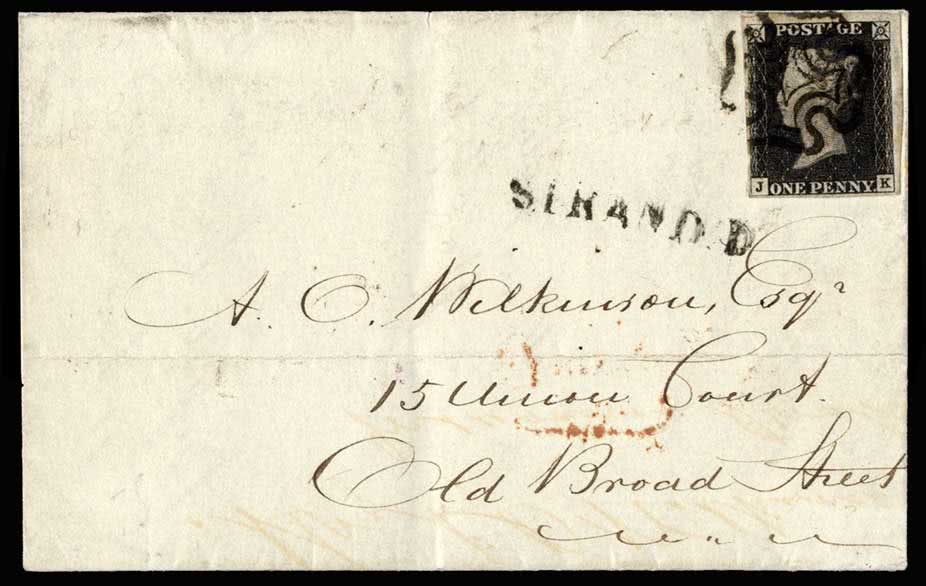 POSTAGE
J ONE PENNY K
STRAND.D
A. C. Wilkinson, Esqr
15 Union Court.
Old Broad Street